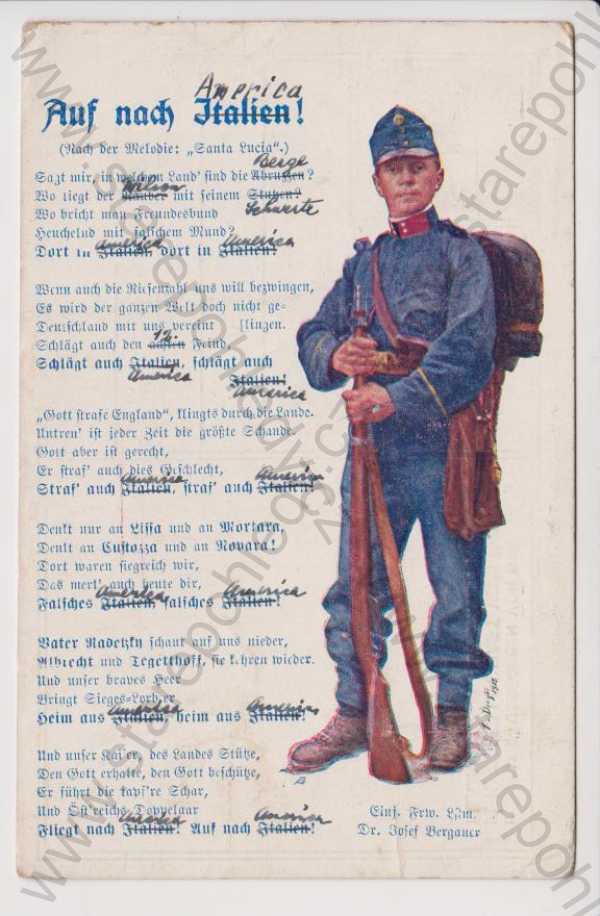 America
Auf nach Italien!
(Nach der Melodie: „Santa Lucia“.)
Berge
Sagt mir, in welchem Land' sind die Abruzzen?
Wilson
Wo liegt der Räuber mit seinem Stutzen?
Wo bricht man Freundesbund
Schwerte
Heuchelnd mit falschem Mund?
America America
Dort in Italien, dort in Italien!
Wenn auch die Riesenzahl uns will bezwingen,
Es wird der ganzen Welt doch nicht ge-
Deutschland mit uns vereint lingen.
12.
Schlägt auch den achten Feind,
Schlägt auch Italien, schlägt auch
America Italien!
America
„Gott strafe England“, klingts durch die Lande.
Untreu' ist jeder Zeit die größte Schande.
Gott aber ist gerecht,
Er straf' auch dies Geschlecht,
America America
Straf' auch Italien, straf' auch Italien!
Denkt nur an Lissa und an Mortara,
Denkt an Custozza und an Novara!
Dort waren siegreich wir,
Das merk' auch heute dir,
America America
Falsches Italien, falsches Italien!
Vater Radetzky schaut auf uns nieder,
Albrecht und Tegetthoff, sie kehren wieder.
Und unser braves Heer
Bringt Sieges-Lorb'er
America America
Heim aus Italien, heim aus Italien!
Und unser Kaiser, des Landes Stütze,
Den Gott erhalte, den Gott beschütze,
Er führt die tapf're Schar,
Und Öst'reichs Doppelaar
America America
Fliegt nach Italien! Auf nach Italien!
Einj. Frw. Ldstm.
Dr. Josef Bergauer
www.starepohledy.cz